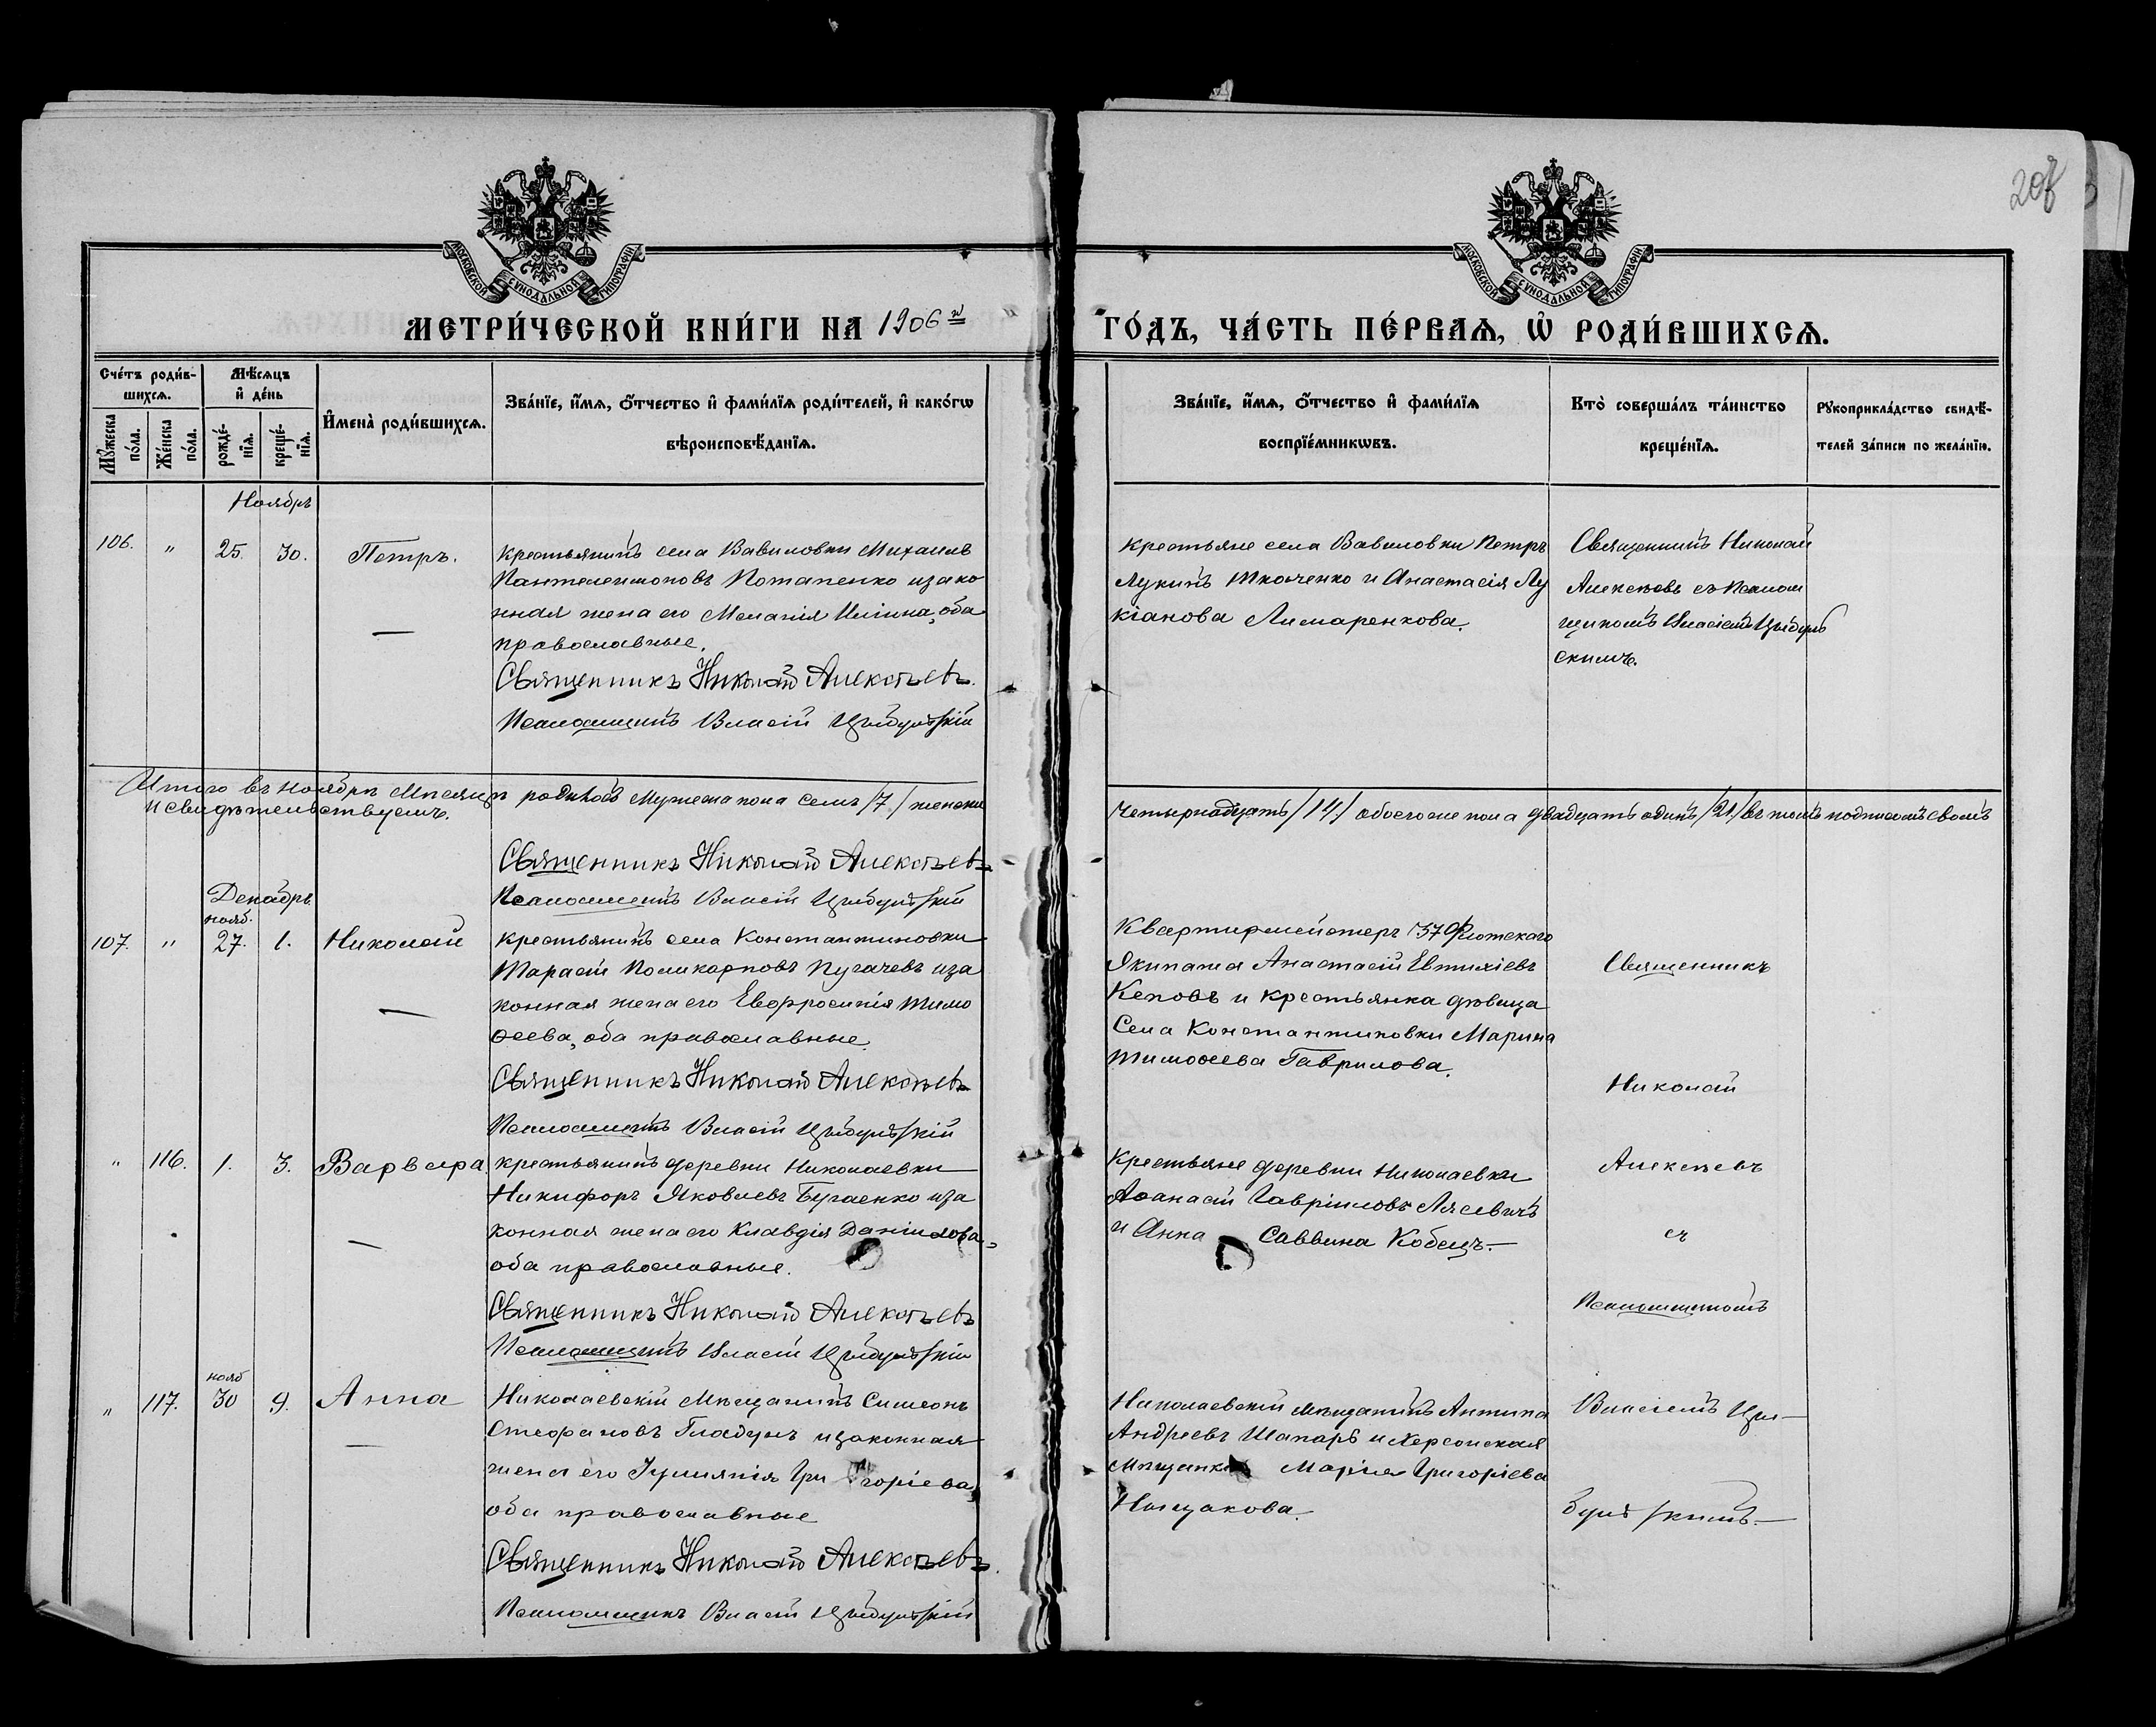 207
МОСКОВСКОЙ СУНОДАЛЬНОЙ ТИПОГРАФІИ
МОСКОВСКОЙ СУНОДАЛЬНОЙ ТИПОГРАФІИ
МЕТРИ́ЧЕСКОЙ КНИ́ГИ НА 1906й
ГО́ДЪ, ЧА́СТЬ ПЕ́РВАѦ, Ѽ РОДИ́ВШИХСѦ.
Сче́тъ роди́в-
шихсѧ.
Мꙋ́жеска по́ла.
Же́нска по́ла.
Мѣ́сѧцъ
и҆ де́нь
рожде́-
нїѧ.
креще́-
нїѧ.
И҆мена̀ роди́вшихсѧ.
Зва́нїе, и҆́мѧ, ѻ҆́тчество и҆ фами́лїѧ роди́телей, и҆ како́гѡ
вѣроисповѣ́данїѧ.
Зва́нїе, и҆́мѧ, ѻ҆́тчество и҆ фами́лїѧ
воспрїе́мникѡвъ.
Кто̀ соверша́лъ та́инство
креще́нїѧ.
Рꙋкоприкла́дство свидѣ́-
телей за́писи по жела́нїю.
Ноябрь
106. " 25. 30. Петръ.
крестьянинъ села Вавиловки Михаилъ
Пантелеимоновъ Потапенко и зако
нная жена его Меланія Ильина, оба
православные.
Священникъ Николай Алексѣевъ.
Псаломщикъ Власій Цыбульскій
крестьяне села Вавиловки Петръ
Лукинъ Ткаченко и Анастасія Лу
кіанова Лимаренкова.
Священникъ Николай
Алексѣевъ съ Псалом
щикомъ Власіемъ Цыбуль
скимъ.
Итого въ Ноябрѣ Мѣсяцѣ родилось Мужеска пола семь /7/ женска
четырнадцать /14/ обоего же пола двадцать одинъ /21/ въ томъ подписомъ своимъ
и свидѣтельствуемъ.
Священникъ Николай Алексѣевъ
Псаломщикъ Власій Цыбульскій
Декабрь.
нояб.
107. " 27. 1. Николай
крестьянинъ села Константиновки
Тарасій Поликарповъ Пугачевъ и за
конная жена его Евфросинія Тимо
ѳеева, оба православные.
Священникъ Николай Алексѣевъ
Псаломщикъ Власій Цыбульскій
Квартирмейстеръ 37 Флотскаго
Экипажа Анастасій Евтихіевъ
и крестьянка дѣвица
Села Константиновки Марина
Тимоѳеева Гаврилова.
" 116. 1. 3. Варвара
крестьянинъ деревни Николаевки
Никифоръ Яковлевъ Бугаенко и за
конная жена его Клавдія Даніилова,
оба православные.
Священникъ Николай Алексѣевъ
Псаломщикъ Власій Цыбульскій
Крестьяне деревни Николаевки
Аѳанасій Гавріиловъ
и Анна Саввина Кобецъ.
нояб
" 117. 30 9. Анна
Николаевскій Мѣщанинъ Симеонъ
Стефановъ Гладунъ и законная
жена его Іуліянія Григоріева,
оба православные
Священникъ Николай Алексѣевъ.
Псаломщикъ Власій Цыбульскій
Николаевскій мѣщанинъ Антипа
Андреевъ Шапарь и Херсонская
мѣщанка Марія Григоріева
Священникъ
Николай
Алексѣевъ
съ
Псаломщикомъ
Власіемъ Цы-
бульскимъ.